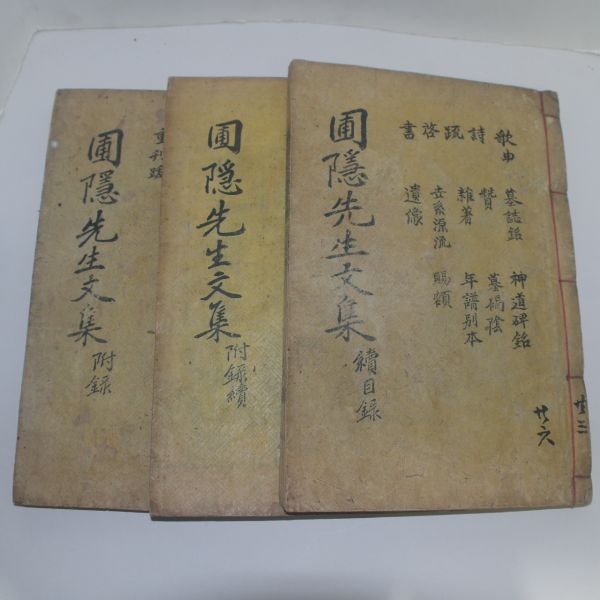 歌曲 墓誌銘 神道碑銘
詩 贊 墓碣陰
疏 雜著 年譜別本
啓 世系源流 賜額
書 遺像
圃隱先生文集 續目錄
廿六
圃隠先生文集 附録續
重刊
圃隱先生文集 附錄